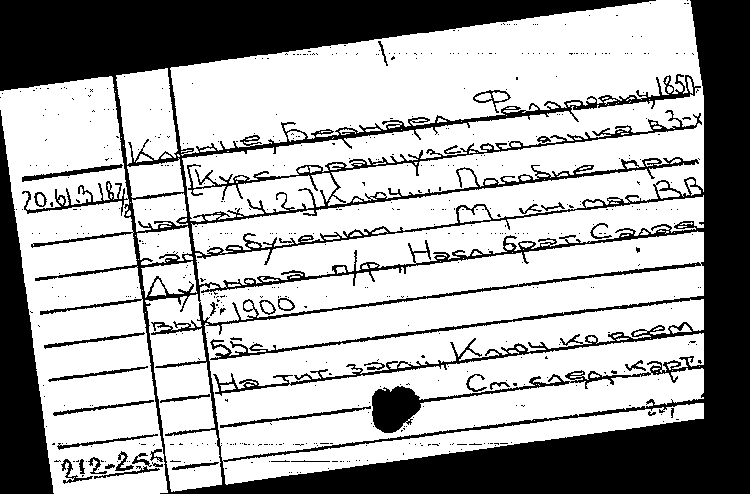 1.
Кленце, Бернард Федорович, 1850-
[Курс французского языка в 3-х
20.61.3.187
частях Ч.2.] Ключ... Пособие при
самообучении. М., кн. маг. В.В.
Думнова п/ф „Насл. брат. Салае-
вых", 1900.
55с.
На тит. загл.: „Ключ ко всем
См. след. карт.
212-255